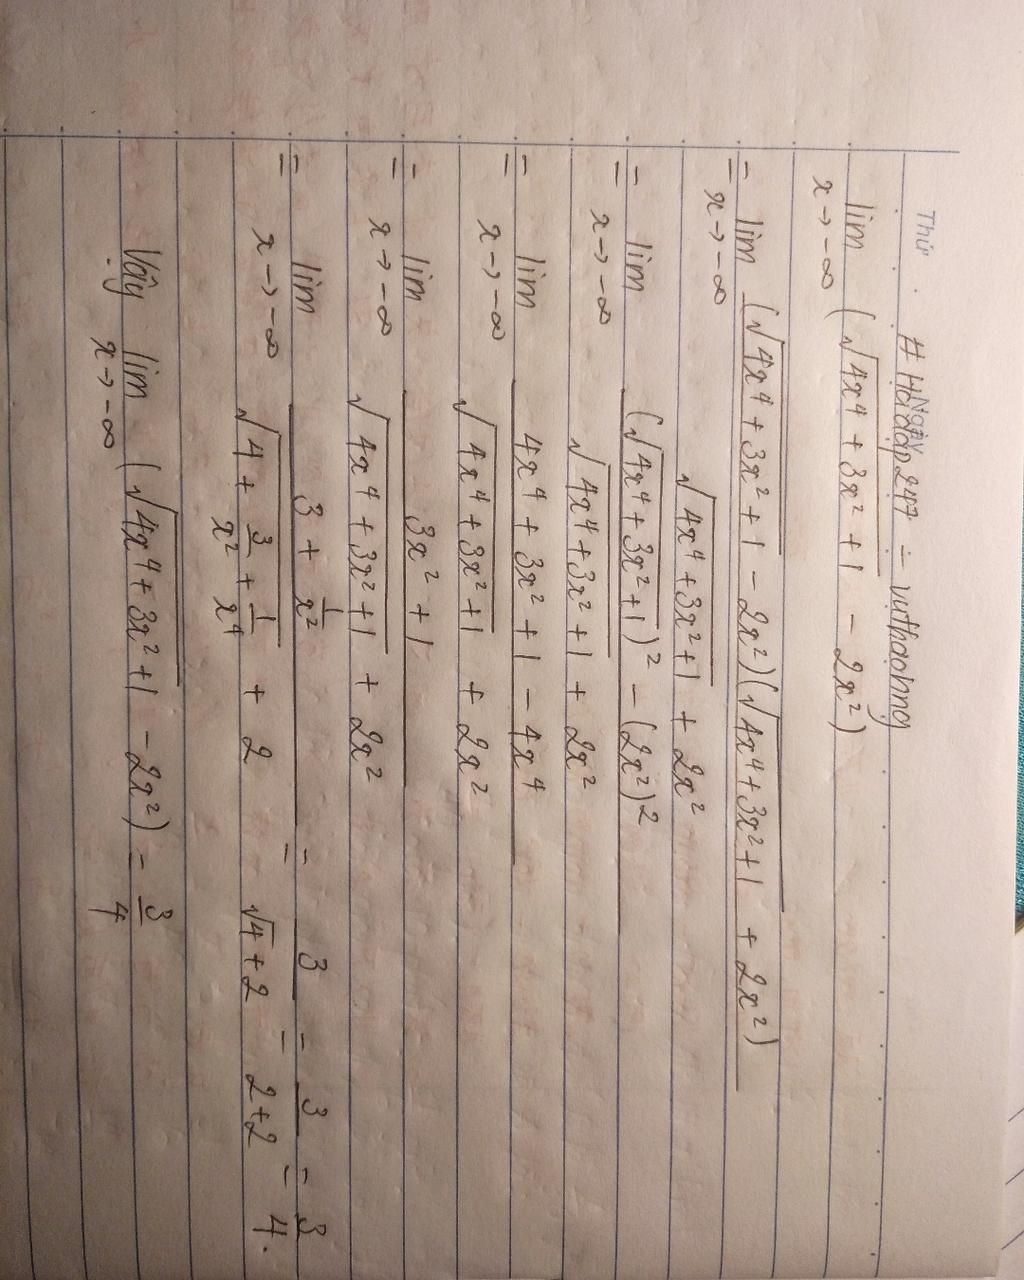 Thứ . Ngày
# Hoidap247 - vuthaohng
lim (√(4x⁴ + 3x² + 1) - 2x²)
x→-∞
= lim (√(4x⁴ + 3x² + 1) - 2x²)(√(4x⁴ + 3x² + 1) + 2x²)
x→-∞ √(4x⁴ + 3x² + 1) + 2x²
= lim (√(4x⁴ + 3x² + 1))² - (2x²)²
x→-∞ √(4x⁴ + 3x² + 1) + 2x²
= lim 4x⁴ + 3x² + 1 - 4x⁴
x→-∞ √(4x⁴ + 3x² + 1) + 2x²
= lim 3x² + 1
x→-∞ √(4x⁴ + 3x² + 1) + 2x²
= lim 3 + 1/x² = 3 = 3 = 3
x→-∞ √(4 + 3/x² + 1/x⁴) + 2 √4 + 2 2+2 4.
Vậy lim (√(4x⁴ + 3x² + 1) - 2x²) = 3/4
x→-∞